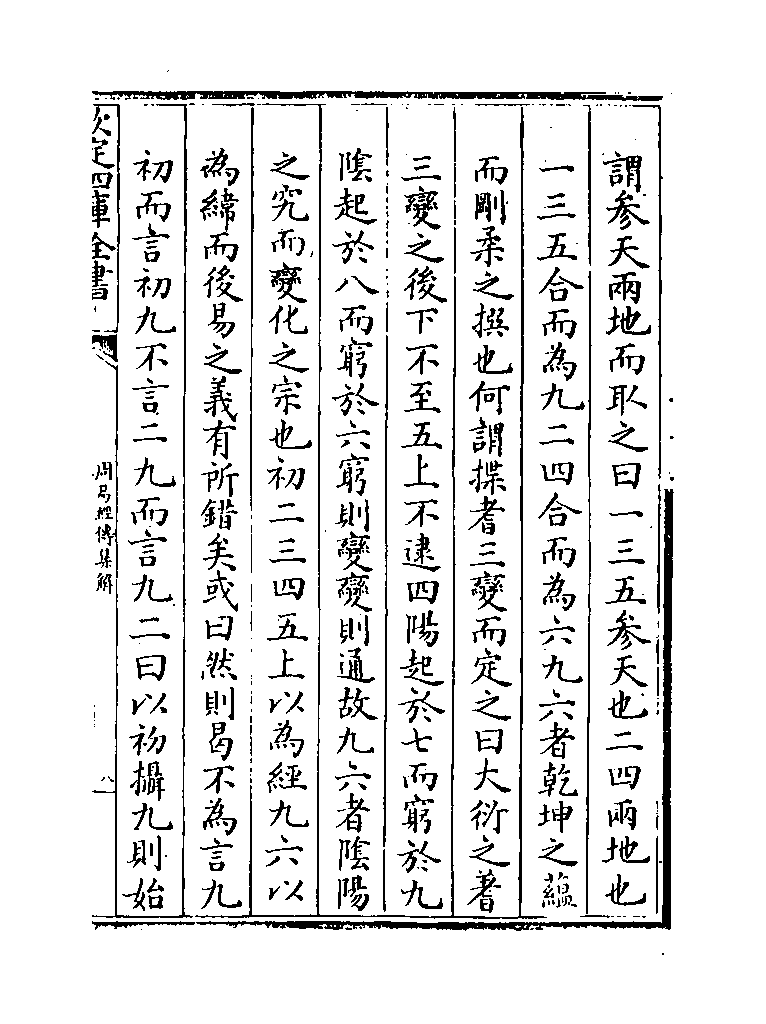 謂參天兩地而取之曰一三五參天也二四兩地也
一三五合而為九二四合而為六九六者乾坤之蘊
而剛柔之撰也何謂揲蓍三變而定之曰大衍之蓍
三變之後下不至五上不逮四陽起於七而窮於九
陰起於八而窮於六窮則變變則通故九六者陰陽
之究而變化之宗也初二三四五上以為經九六以
為緯而後易之義有所錯矣或曰然則曷不為言九
初而言初九不言二九而言九二曰以初攝九則始
欽定四庫全書
周易經傳集解
八